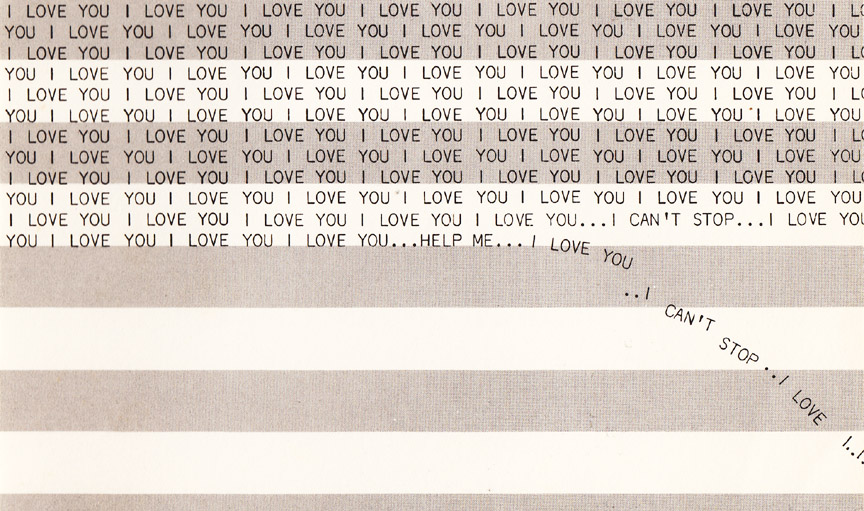 I LOVE YOU I LOVE YOU I LOVE YOU I LOVE YOU I LOVE YOU I LOVE YOU I LOVE YOU I L
YOU I LOVE YOU I LOVE YOU I LOVE YOU I LOVE YOU I LOVE YOU I LOVE YOU I LOVE YOU
I LOVE YOU I LOVE YOU I LOVE YOU I LOVE YOU I LOVE YOU I LOVE YOU I LOVE YOU I L
YOU I LOVE YOU I LOVE YOU I LOVE YOU I LOVE YOU I LOVE YOU I LOVE YOU I LOVE YOU
I LOVE YOU I LOVE YOU I LOVE YOU I LOVE YOU I LOVE YOU I LOVE YOU I LOVE YOU I L
YOU I LOVE YOU I LOVE YOU I LOVE YOU I LOVE YOU I LOVE YOU I LOVE YOU I LOVE YOU
I LOVE YOU I LOVE YOU I LOVE YOU I LOVE YOU I LOVE YOU I LOVE YOU I LOVE YOU I L
YOU I LOVE YOU I LOVE YOU I LOVE YOU I LOVE YOU I LOVE YOU I LOVE YOU I LOVE YOU
I LOVE YOU I LOVE YOU I LOVE YOU I LOVE YOU I LOVE YOU I LOVE YOU I LOVE YOU I L
YOU I LOVE YOU I LOVE YOU I LOVE YOU I LOVE YOU I LOVE YOU I LOVE YOU I LOVE YOU
I LOVE YOU I LOVE YOU I LOVE YOU I LOVE YOU I LOVE YOU...I CAN'T STOP...I LOVE YOU
YOU I LOVE YOU I LOVE YOU I LOVE YOU...HELP ME...I LOVE YOU
..I
CAN'T
STOP..I
LOVE
I..I..